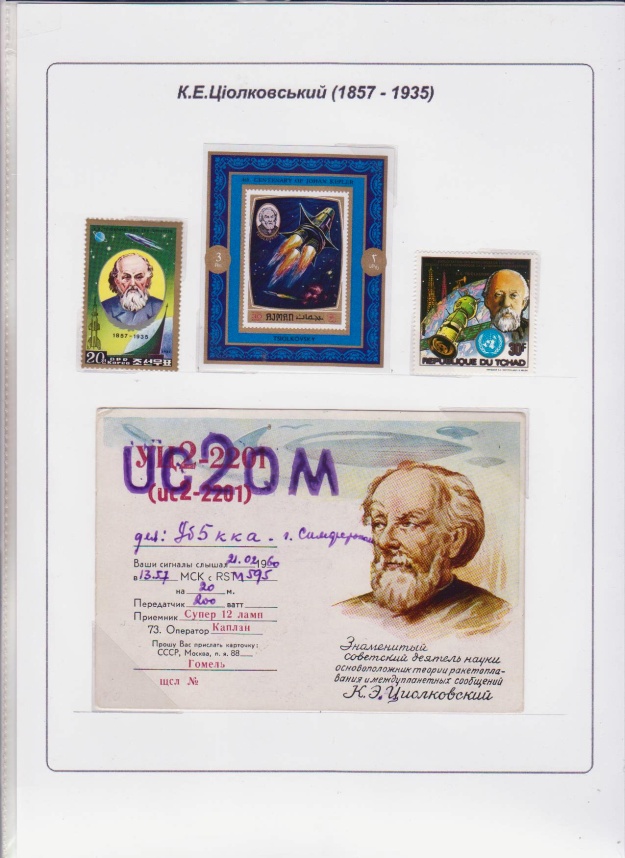 К.Е.Ціолковський (1857 - 1935)
1857-1935
20 DPR
Korea 조선우표
4th CENTENARY OF JOHAN KEPLER
3
AJMAN عجمان
TSIOLKOVSKY
30F
REPUBLIQUE DU TCHAD
УЦ2-2201
UC2OM
(uc2-2201)
для: Уб5кка. г. Симферополь
Ваши сигналы слышал 21.02 1960
в 13.57 МСК с RSTM 595
на 20 м.
Передатчик 200 ватт
Приемник Супер 12 ламп
73. Оператор Каплан
Прошу Вас прислать карточку:
СССР, Москва, п. я. 88
Гомель
щсл №
Знаменитый
советский деятель науки
основоположник теории ракетопла-
вания и междупланетных сообщений
К.Э.Циолковский